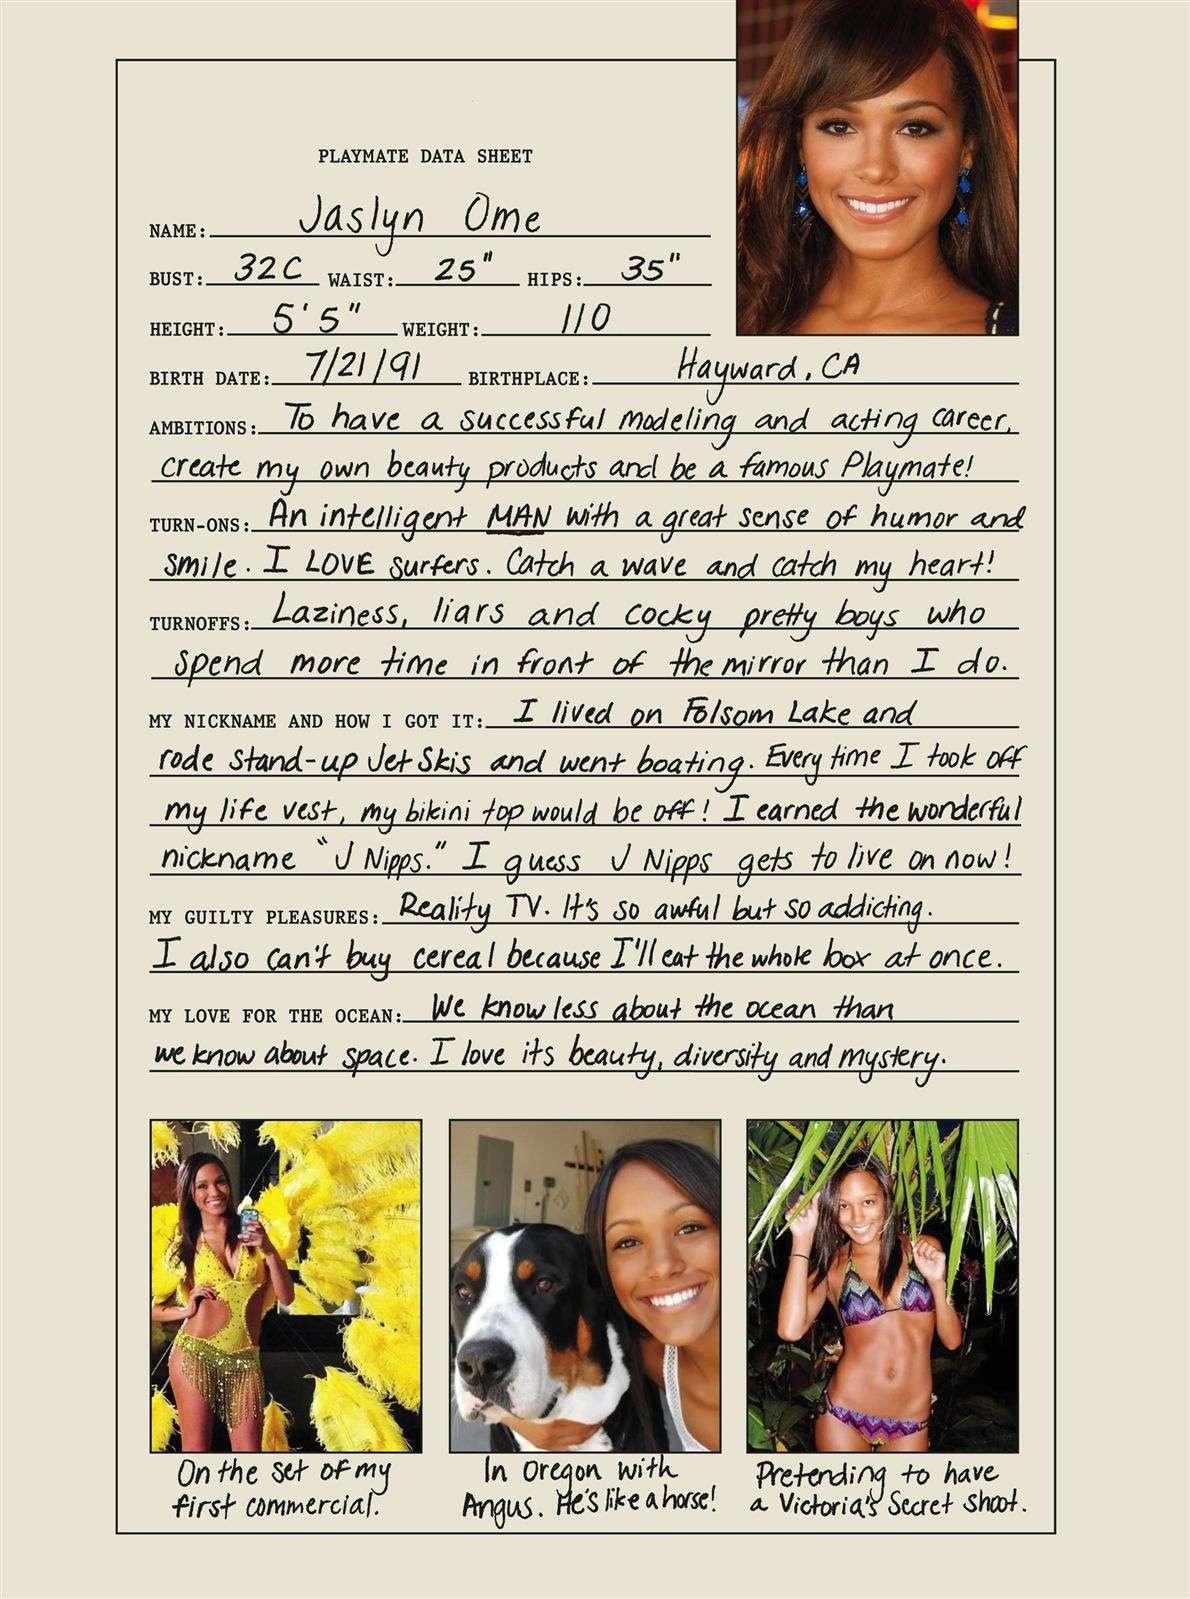 PLAYMATE DATA SHEET
NAME: Jaslyn Ome
BUST: 32C WAIST: 25" HIPS: 35"
HEIGHT: 5'5" WEIGHT: 110
BIRTH DATE: 7/21/91 BIRTHPLACE: Hayward, CA
AMBITIONS: To have a successful modeling and acting career,
create my own beauty products and be a famous Playmate!
TURN-ONS: An intelligent MAN with a great sense of humor and
smile. I LOVE surfers. Catch a wave and catch my heart!
TURNOFFS: Laziness, liars and cocky pretty boys who
spend more time in front of the mirror than I do.
MY NICKNAME AND HOW I GOT IT: I lived on Folsom Lake and
rode stand-up Jet Skis and went boating. Every time I took off
my life vest, my bikini top would be off! I earned the wonderful
nickname "J Nipps." I guess J Nipps gets to live on now!
MY GUILTY PLEASURES: Reality TV. It's so awful but so addicting.
I also can't buy cereal because I'll eat the whole box at once.
MY LOVE FOR THE OCEAN: We know less about the ocean than
we know about space. I love its beauty, diversity and mystery.
On the set of my
first commercial.
In Oregon with
Angus. He's like a horse!
Pretending to have
a Victoria's Secret shoot.